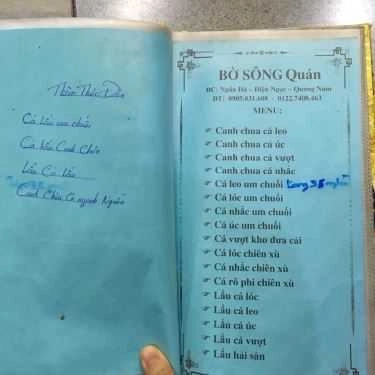 Thêm Thực Đơn
Cá Lấu um chuối
Cá Lấu Canh Chua
Lẩu Cá Lấu
Canh Chua Cá ngạnh Nguồn
BỜ SÔNG Quán
ĐC: Ngân Hà - Điện Ngọc - Quảng Nam
ĐT: 0905.631.608 - 0122.7408.463
MENU:
Canh chua cá leo
Canh chua cá úc
Canh chua cá vượt
Canh chua cá nhắc
Cá leo um chuối
Cá lóc um chuối
Cá nhắc um chuối
Cá úc um chuối
Cá vượt kho dưa cải
Cá lóc chiên xù
Cá nhắc chiên xù
Cá rô phi chiên xù
Lẩu cá lóc
Lẩu cá leo
Lẩu cá úc
Lẩu cá vượt
Lẩu hải sản